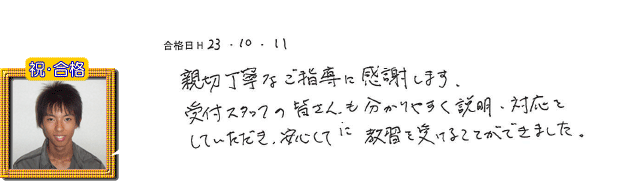 合格日H 23.10.11
祝・合格
親切丁寧なご指導に感謝します。
受付スタッフの皆さんも分かりやすく説明・対応を
していただき、安心して教習を受けることができました。